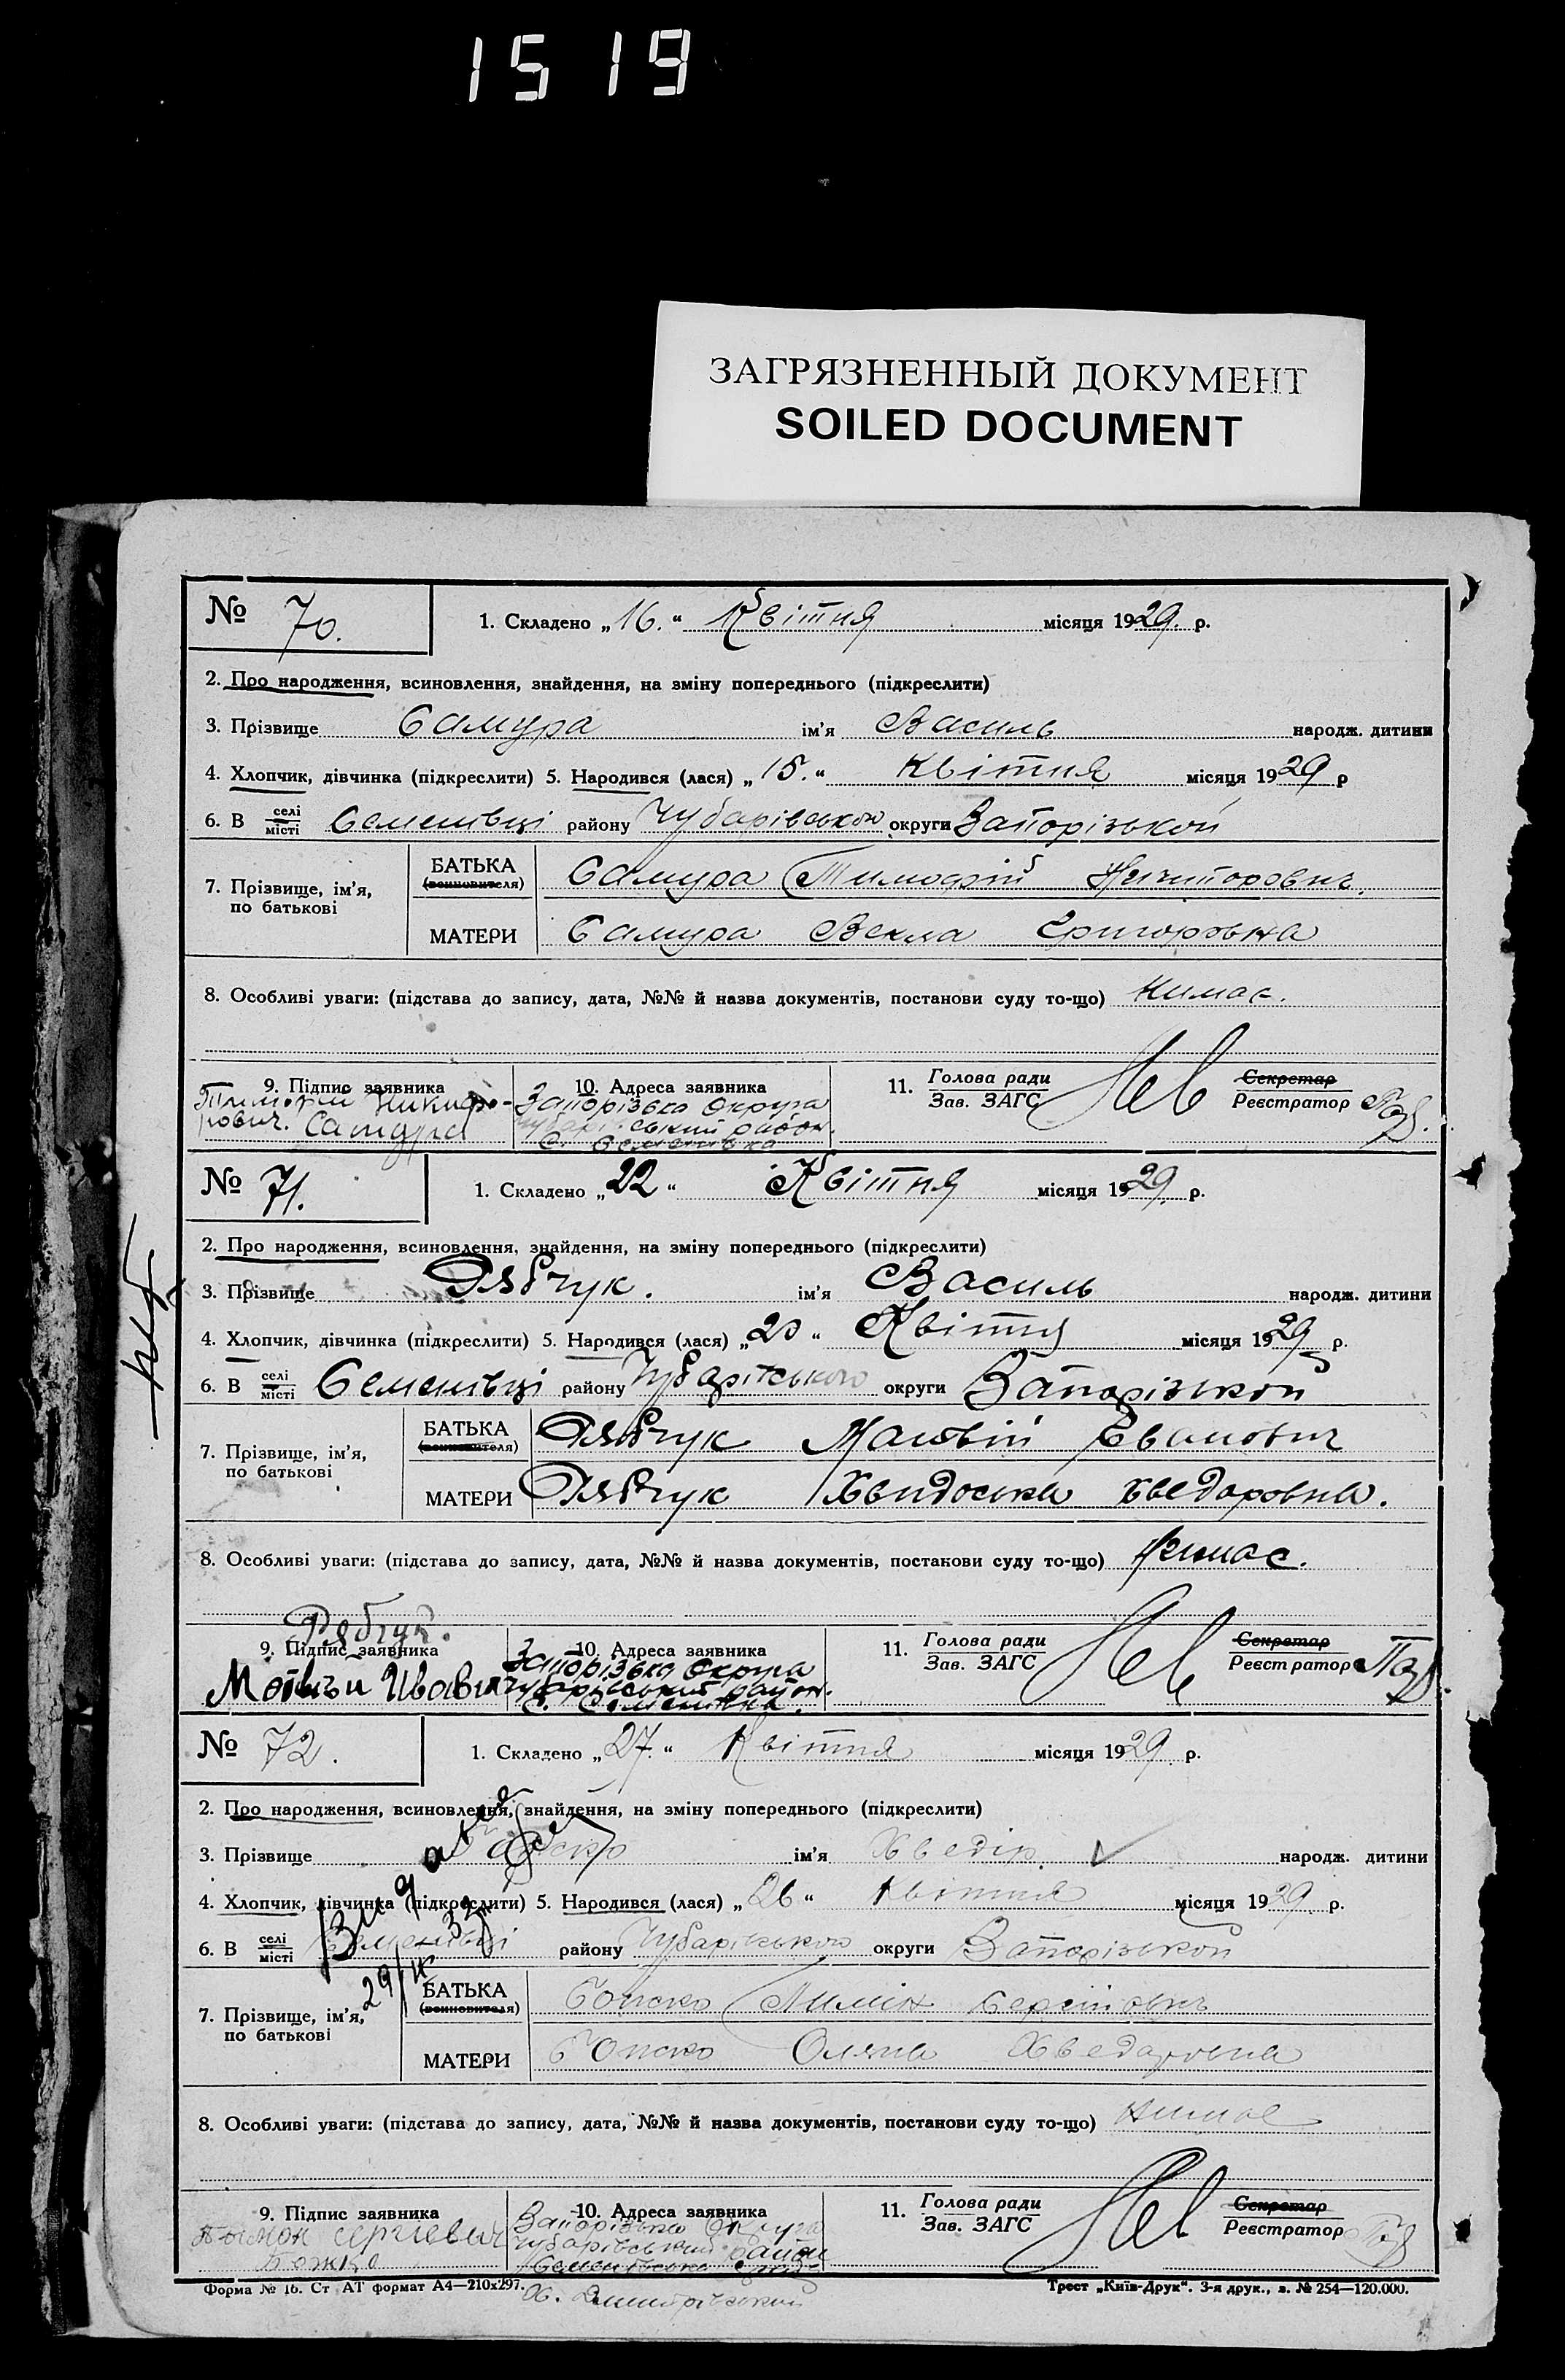 1519
ЗАГРЯЗНЕННЫЙ ДОКУМЕНТ
SOILED DOCUMENT
№ 70.
1. Складено „16.“ Квітня місяця 1929. р.
2. Про народження, всиновлення, знайдення, на зміну попереднього (підкреслити)
3. Прізвище Самура ім'я Василь народж. дитини
4. Хлопчик, дівчинка (підкреслити) 5. Народився (лася) „15.“ Квітня місяця 1929 р
6. В селі місті Семенівці району Чубарівськои округи Запорізькой
7. Прізвище, ім'я, по батькові
БАТЬКА (всиновителя) Самура Тимофій Ничипорович.
МАТЕРИ Самура Векла Григоровна
8. Особливі уваги: (підстава до запису, дата, №№ й назва документів, постанови суду то-що) Нимає.
9. Підпис заявника
Тимофій Никифо-
рович. Самура
10. Адреса заявника
Запорізька Округа
Чубарівський район.
С. Семенівка
11. Голова ради Зав. ЗАГС
Секретар Реєстратор
№ 71.
1. Складено „22“ Квітня місяця 1929. р.
2. Про народження, всиновлення, знайдення, на зміну попереднього (підкреслити)
3. Прізвище Рябчук. ім'я Василь народж. дитини
4. Хлопчик, дівчинка (підкреслити) 5. Народився (лася) „20“ Квітня місяця 1929 р.
6. В селі місті Семенівці району Чубарівського округи Запорізькой
7. Прізвище, ім'я, по батькові
БАТЬКА (всиновителя) Рябчук Матвій Іванович
МАТЕРИ Рябчук Хвидоська Хведоровна.
8. Особливі уваги: (підстава до запису, дата, №№ й назва документів, постанови суду то-що) Нимає.
Рябчук.
9. Підпис заявника
10. Адреса заявника
Запорізька Округа
Чубарівський район.
С. Семенівка.
11. Голова ради Зав. ЗАГС
Секретар Реєстратор
№ 72.
1. Складено „27.“ Квітня місяця 1929. р.
2. Про народження, всиновлення, знайдення, на зміну попереднього (підкреслити)
3. Прізвище ім'я Хведір. народж. дитини
4. Хлопчик, дівчинка (підкреслити) 5. Народився (лася) „26“ Квітня місяця 1929. р.
6. В селі місті Семенівці району Чубарівського округи Запорізькой
7. Прізвище, ім'я, по батькові
БАТЬКА (всиновителя) Сергійович
МАТЕРИ Оляна Хведоровна
8. Особливі уваги: (підстава до запису, дата, №№ й назва документів, постанови суду то-що) Нимає
9. Підпис заявника
Сергієвич
Божко
10. Адреса заявника
Запорізька Округа
Чубарівський район
Х. Дмитрівський
11. Голова ради Зав. ЗАГС
Секретар Реєстратор
Форма № 16. Ст АТ формат А4—210x297.
Трест „Київ-Друк“. 3-я друк., з. № 254—120.000.